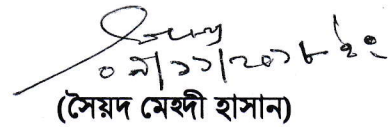 ০৯/১১/২০১৮ ইং
(সৈয়দ মেহদী হাসান)